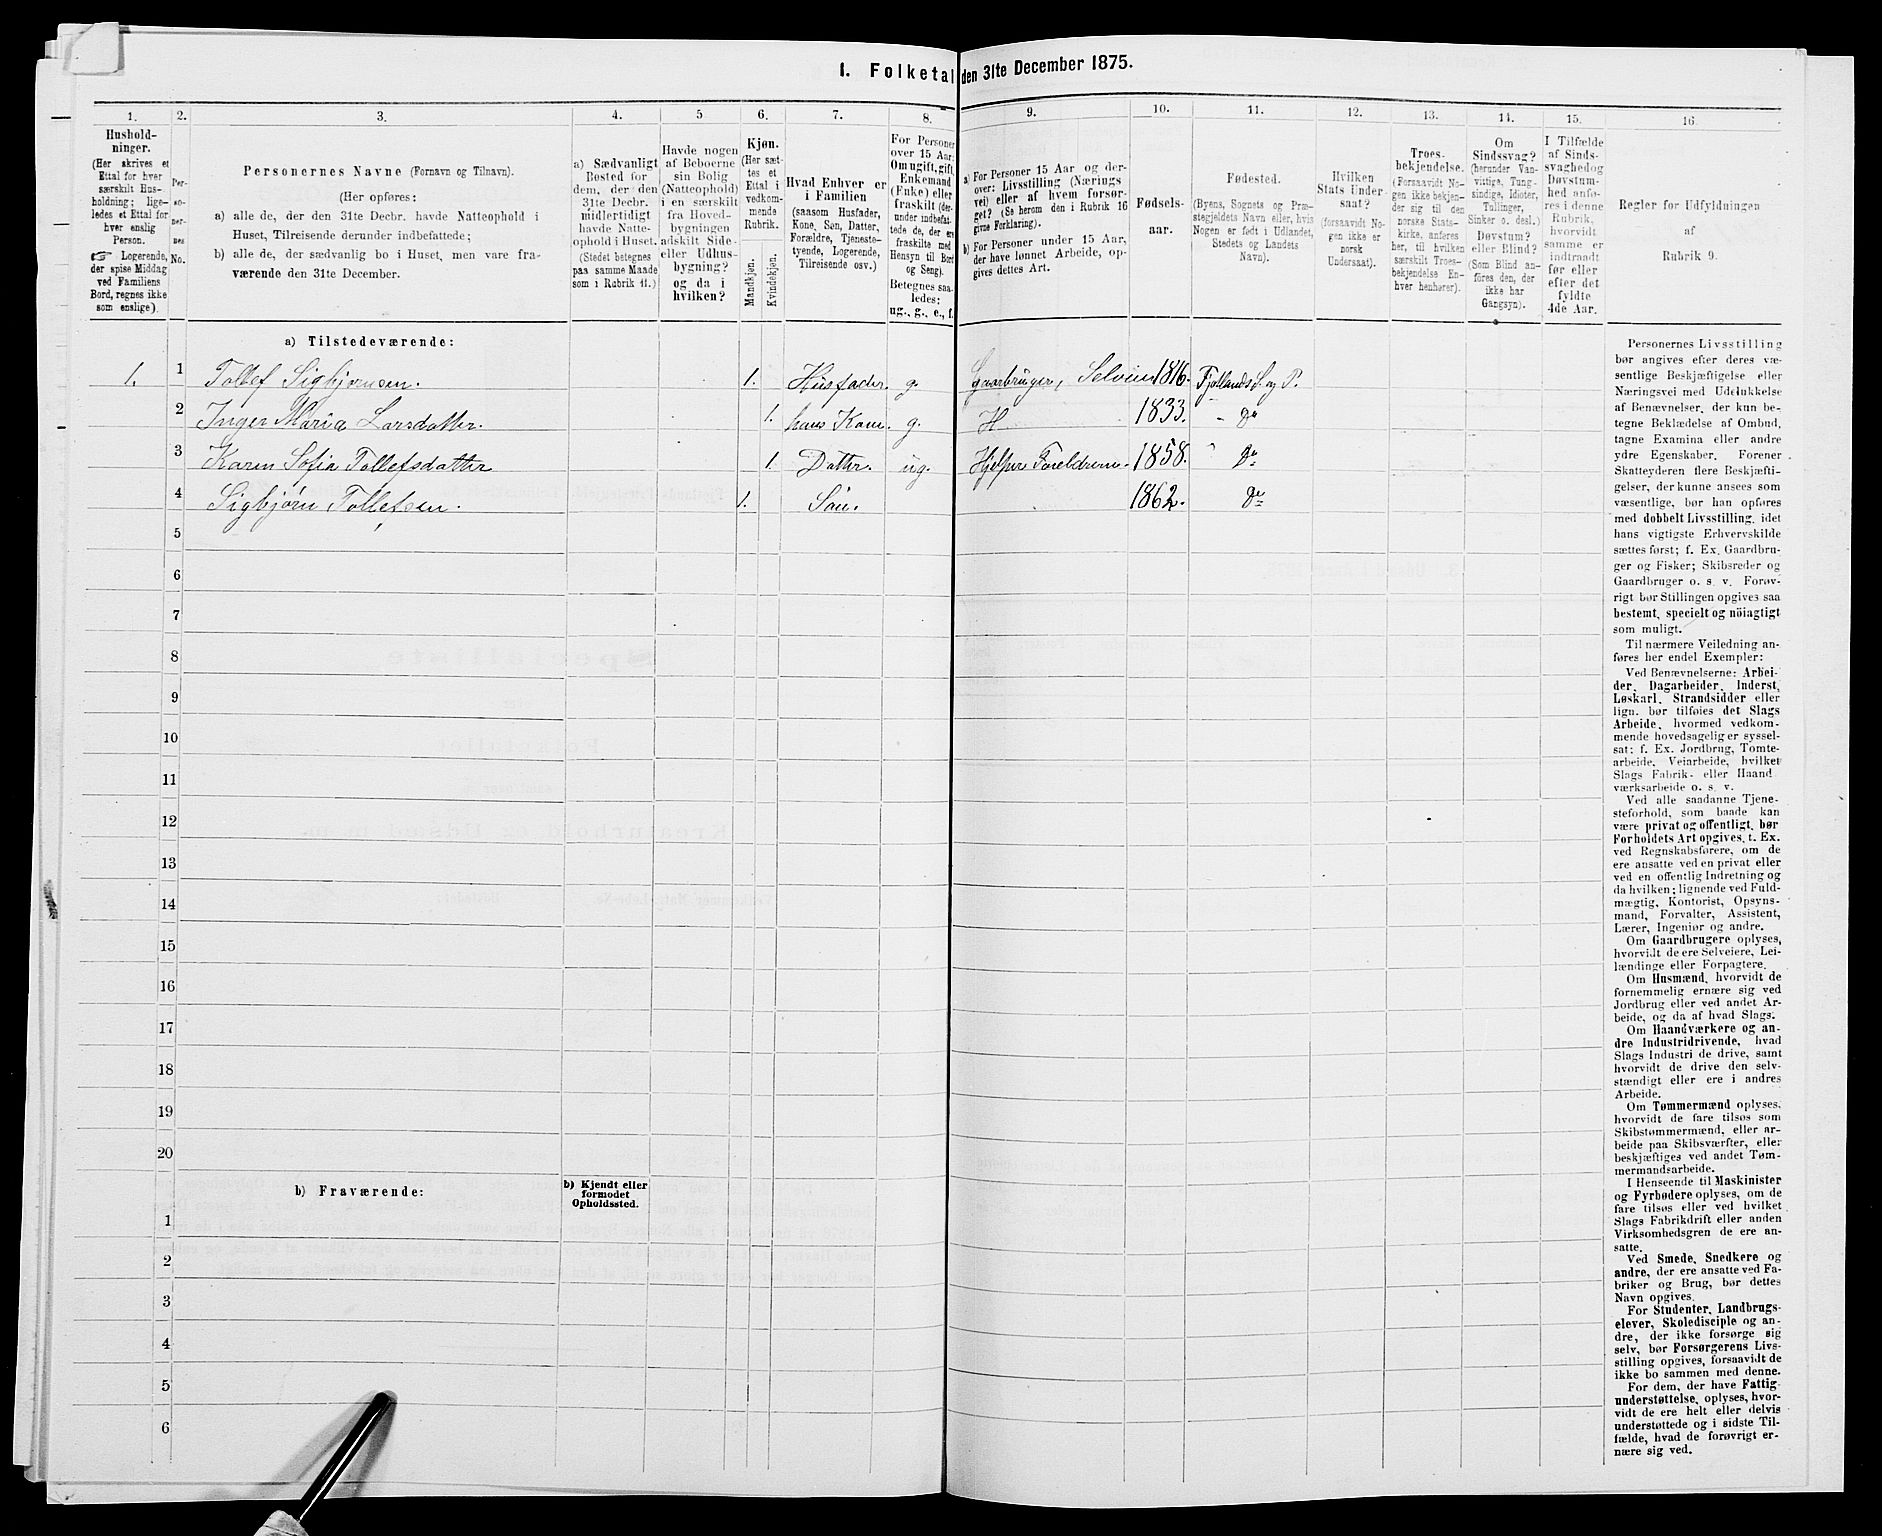 1. Folketal den 31te December 1875.
1. 2. 3. 4. 5 6. 7. 8. 9. 10. 11. 12. 13. 14. 15. 16.
Hushold-
ninger.
(Her skrives et
Ettal for hver
særskilt Hus-
holdning; lige-
ledes et Ettal for
hver enslig
Person.
☞ Logerende,
der spise Middag
ved Familiens
Bord, regnes ikke
som enslige).
Per-
so-
ner-
nes
No.
Personernes Navne (Fornavn og Tilnavn).
(Her opføres:
a) alle de, der den 31te Decbr. havde Natteophold i
Huset, Tilreisende derunder indbefattede;
b) alle de, der sædvanlig bo i Huset, men vare fra-
værende den 31te December.
a) Sædvanligt
Bosted for
dem, der den
31te Decbr.
midlertidigt
havde Natte-
ophold i Huset.
(Stedet betegnes
paa samme Maade
som i Rubrik 11.)
Havde nogen
af Beboerne
sin Bolig
(Natteophold)
i en særskilt
fra Hoved-
bygningen
adskilt Side-
eller Udhus-
bygning?
og da i
hvilken?
Kjøn.
(Her sæt-
tes et
Ettal i
vedkom-
mende
Rubrik.
Mandkjøn.
Kvindekjøn.
Hvad Enhver er
i Familien
(saasom Husfader,
Kone, Søn, Datter,
Forældre, Tjeneste-
tyende, Logerende,
Tilreisende osv.)
For Personer
over 15 Aar:
Om ugift, gift,
Enkemand
(Enke) eller
fraskilt (der-
under indbefat-
tede de, der ere
fraskilte med
Hensyn til Bord
og Seng).
Betegnes saa-
ledes:
ug., g., e., f.
a) For Personer 15 Aar og der-
over: Livsstilling (Nærings-
vei) eller af hvem forsør-
get? (Se herom den i Rubrik 16
givne Forklaring).
b) For Personer under 15 Aar,
der have lønnet Arbeide, op-
gives dettes Art.
Fødsels-
aar.
Fødested.
(Byens, Sognets og Præ-
stegjeldets Navn eller, hvis
Nogen er født i Udlandet,
Stedets og Landets
Navn).
Hvilken
Stats Under-
saat?
(forsaavidt No-
gen ikke er
norsk
Undersaat).
Troes-
bekjendelse.
(Forsaavidt No-
gen ikke bekjen-
der sig til den
norske Stats-
kirke, anføres
her, til hvilken
særskilt Troes-
bekjendelse En-
hver henhører).
Om
Sindssvag?
(herunder Van-
vittige, Tung-
sindige, Idioter,
Tullinger,
Sinker o. desl.)
Døvstum?
eller Blind?
(Som Blind an-
føres den, der
ikke har
Gangsyn).
I Tilfælde
af Sinds-
svaghed og
Døvstum-
hed anfø-
res i denne
Rubrik,
hvorvidt
samme er
indtraadt
før eller
efter det
fyldte
4de Aar.
Regler for Udfyldningen
af
Rubrik 9.
a) Tilstedeværende:
1. 1 Tollef Sigbjørnsen. 1. Husfader. g. Gaarbruger, Selveier 1816. Fjotlands S. og P.
2 Inger Maria Larsdatter. 1. hans Kone. g. H 1833. " Do
3 Karen Sofia Tollefsdatter 1. Datter. ug. Hjelper Foreldrene. 1858. " Do
4 Sigbjørn Tollefsen. 1. Søn. 1862. Do
5
6
7
8
9
10
11
12
13
14
15
16
17
18
19
20
b) Fraværende:
b) Kjendt eller
formodet
Opholdssted.
1
2
3
4
5
6
Personernes Livsstilling
bør angives efter deres væ-
sentlige Beskjæftigelse eller
Næringsvei med Udelukkelse
af Benævnelser, der kun be-
tegne Beklædelse af Ombud,
tagne Examina eller andre
ydre Egenskaber. Forener
Skatteyderen flere Beskjæfti-
gelser, der kunne ansees som
væsentlige, bør han opføres
med dobbelt Livsstilling, idet
hans vigtigste Erhvervskilde
sættes først; f. Ex. Gaardbru-
ger og Fisker; Skibsreder og
Gaardbruger o. s. v. Forøv-
rigt bør Stillingen opgives saa
bestemt, specielt og nöiagtigt
som muligt.
Til nærmere Veiledning an-
føres her endel Exempler:
Ved Benævnelserne: Arbei-
der, Dagarbeider, Inderst,
Løskarl, Strandsidder eller
lign. bør tilføies det Slags
Arbeide, hvormed vedkom-
mende hovedsagelig er syssel-
sat; f. Ex. Jordbrug, Tomte-
arbeide, Veiarbeide, hvilket
Slags Fabrik- eller Haand-
værksarbeide o. s. v.
Ved alle saadanne Tjene-
steforhold, som baade kan
være privat og offentligt, bør
Forholdets Art opgives, t. Ex.
ved Regnskabsførere, om de
ere ansatte ved en privat eller
ved en offentlig Indretning og
da hvilken; lignende ved Fuld-
mægtig, Kontorist, Opsyns-
mand, Forvalter, Assistent,
Lærer, Ingeniør og andre.
Om Gaardbrugere oplyses,
hvorvidt de ere Selveiere, Lei-
lændinge eller Forpagtere.
Om Husmænd, hvorvidt de
fornemmelig ernære sig ved
Jordbrug eller ved andet Ar-
beide, og da af hvad Slags.
Om Haandværkere og an-
dre Industridrivende, hvad
Slags Industri de drive, samt
hvorvidt de drive den selv-
stændigt eller ere i andres
Arbeide.
Om Tømmermænd oplyses,
hvorvidt de fare tilsøs som
Skibstømmermænd, eller ar-
beide paa Skibsværfter, eller
beskjæftiges ved andet Tøm-
mermandsarbeide.
I Henseende til Maskinister
og Fyrbødere oplyses, om de
fare tilsøs eller ved hvilket
Slags Fabrikdrift eller anden
Virksomhedsgren de ere an-
satte.
Ved Smede, Snedkere og
andre, der ere ansatte ved Fa-
briker og Brug, bør dettes
Navn opgives.
For Studenter, Landbrugs-
elever, Skoledisciple og an-
dre, der ikke forsørge sig
selv, bør Forsørgerens Livs-
stilling opgives, forsaavidt de
ikke bo sammen med denne.
For dem, der have Fattig-
understøttelse, oplyses, hvor-
vidt de ere helt eller delvis
understøttede og i sidste Til-
fælde, hvad de forøvrigt er-
nære sig ved.